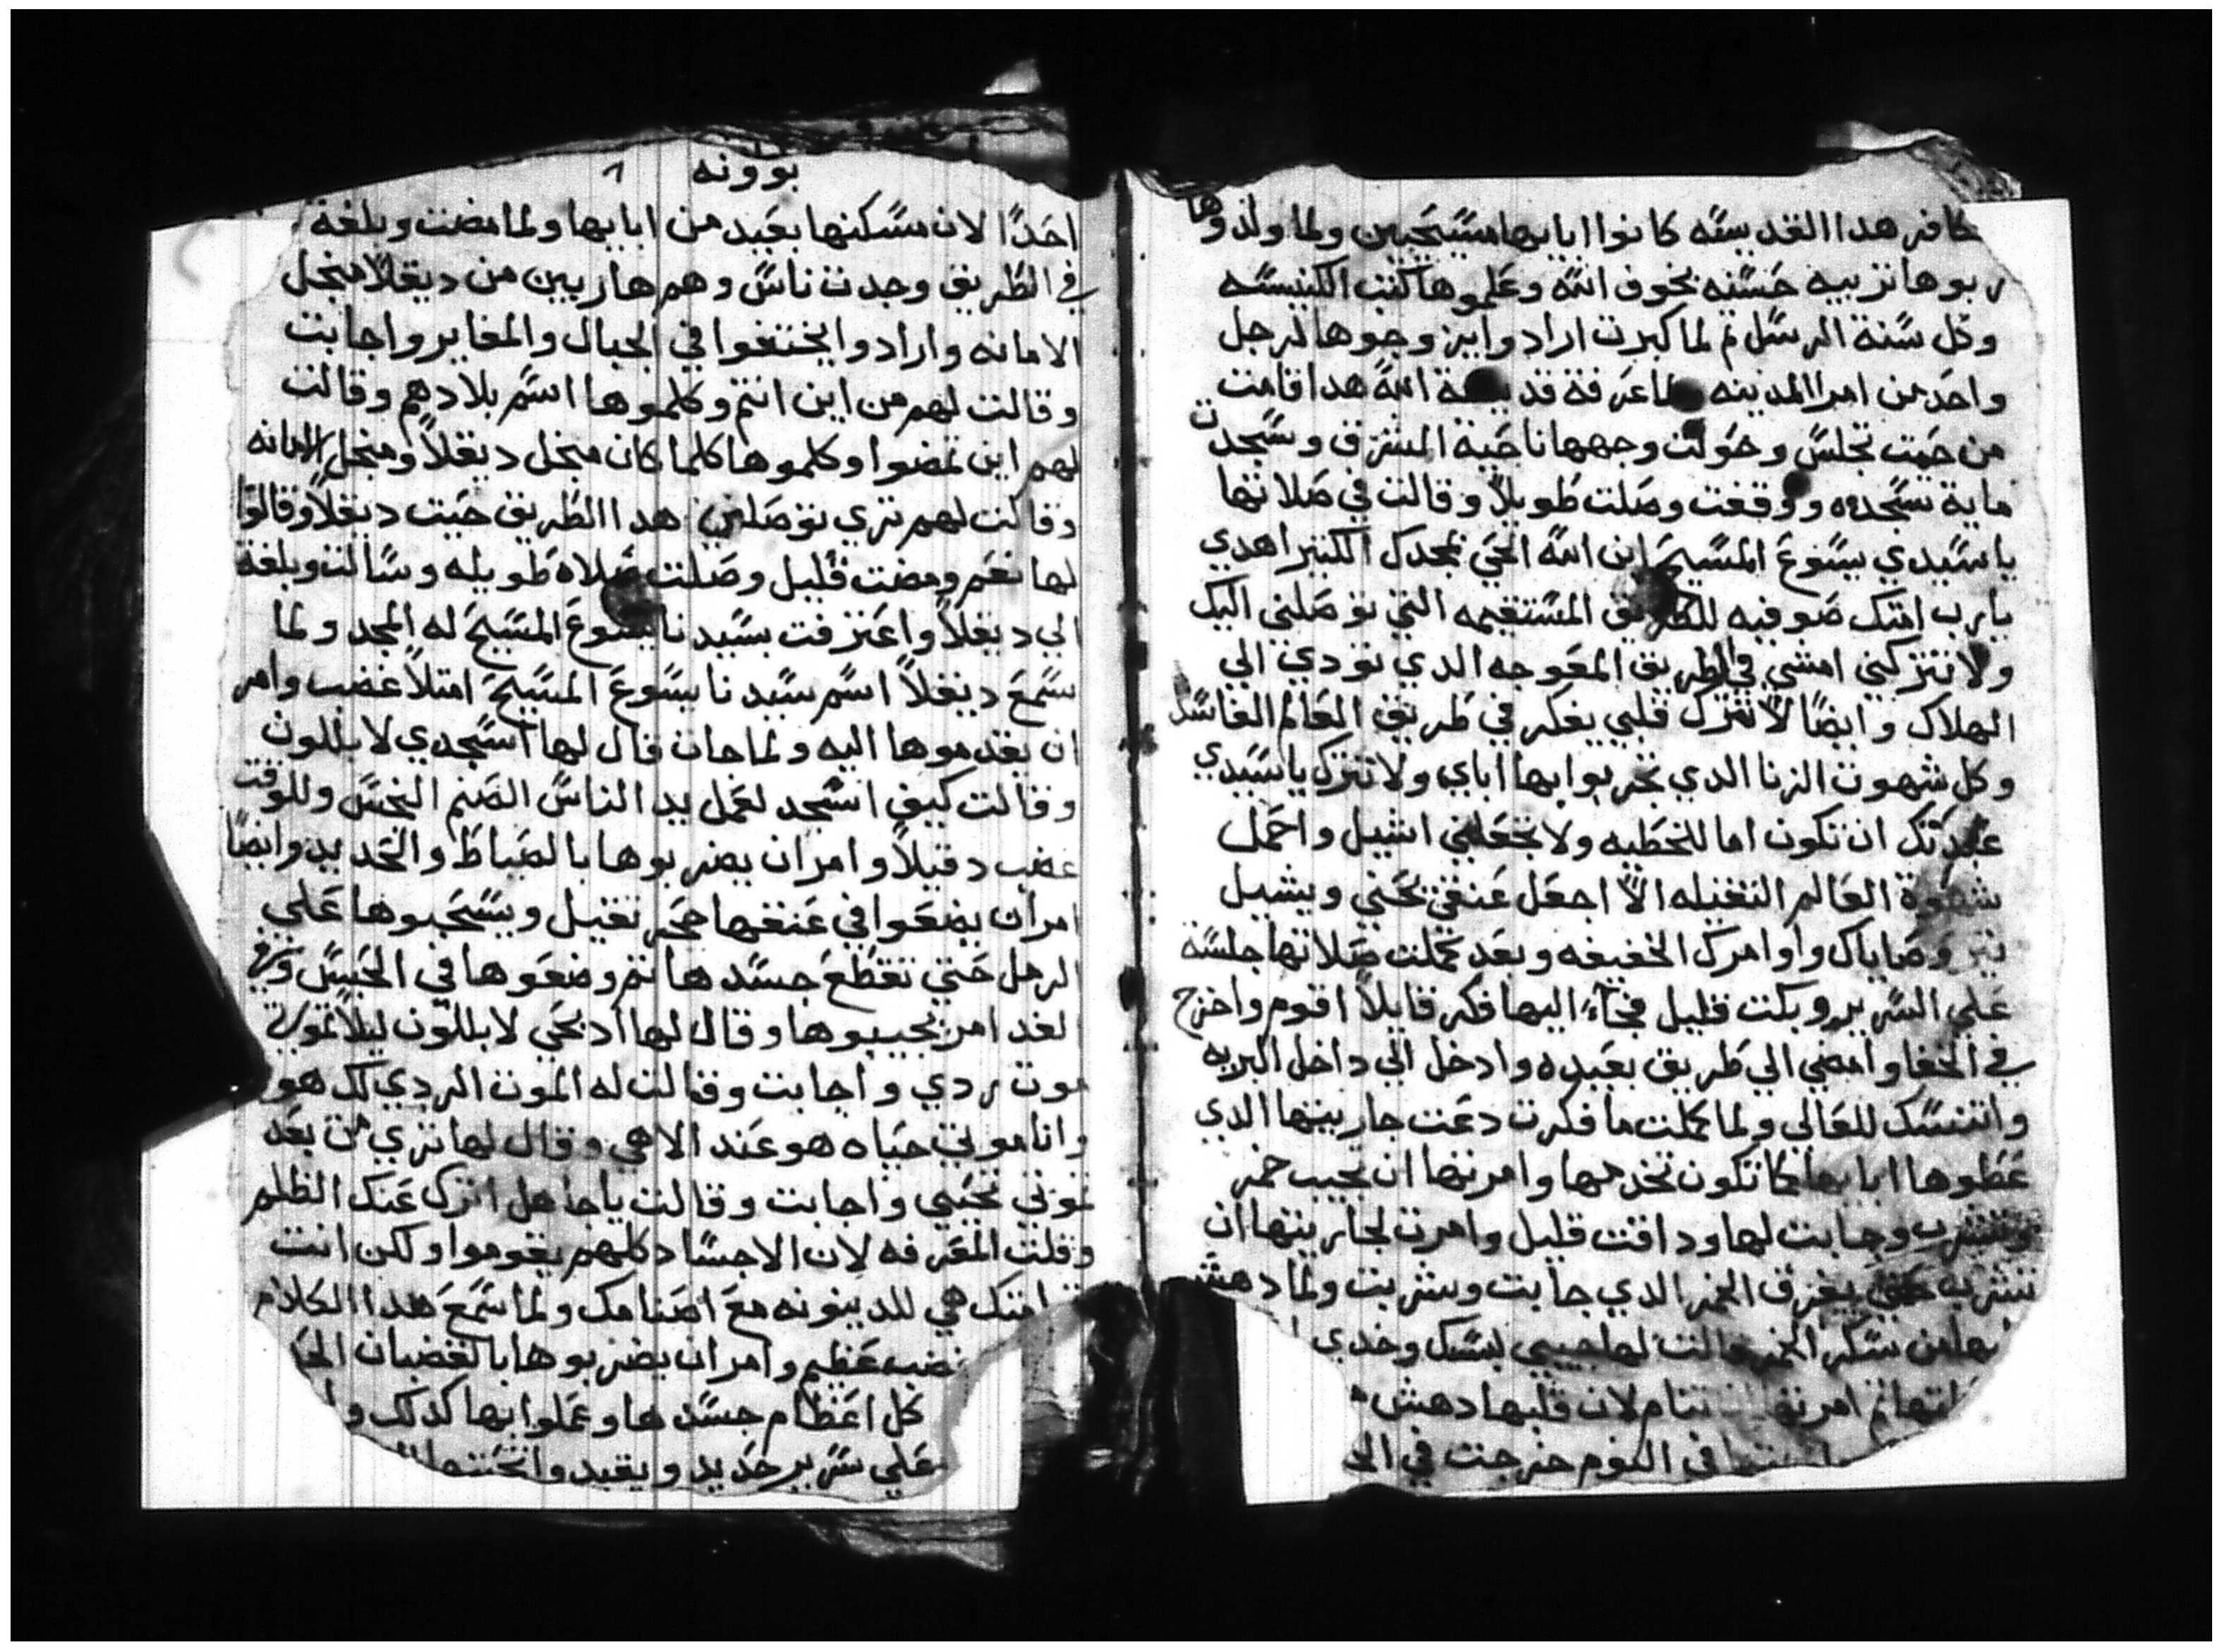 كافر هدا القديسه كانوا ابايها مسيحيين ولما ولدوها
ربوها تربيه حسنه بخوف الله وعلموها كتب الكنيسه
وكل سنة الرسل تم لما كبرت ارادوا يزوجوها لرجل
واحد من امرا المدينه ولما عرفة قديسة الله هدا قامت
من حيت تجلس وحولت وجهها ناحية المشرق وسجدت
ماية سجده ووقفت وصلت طويلاً وقالت في صلاتها
ياسيدي يسوع المسيح ابن الله الحي بمجدك الكتير اهدي
يارب امتك صوفيه للطريق المستقيمه التي توصلني اليك
ولا تتركني امشي في الطريق المعوجه الدي تودي الي
الهلاك وايضاً لا تترك قلبي يفكر في طريق العالم الفاسد
وكل شهوت الزنا الدي تجربوا بها اباي ولا تترك ياسيدي
عبدتك ان تكون اما للخطيه ولا تجعلني اشيل واحمل
شهوة العالم التقيله الا اجعل عنقي تحني ويشيل
نير وصاياك واوامرك الخفيفه وبعد كملت صلاتها جلسة
علي السرير وبكت قليل فجاء اليها فكر قايلاً اقوم واخرج
في الخفا وامضي الي طريق بعيده وادخل الي داخل البريه
واتنسك للعالي ولما كملت ما فكرت دعت جاريتها الدي
عطوها ابايها كما تكون تخدمها وامرتها ان تجيب خمر
وتشرب وجابت لها وداقت قليل وامرت لجاريتها ان
تشربه حتي يفرق الخمر الدي جابت وشربت ولما دهش
من سكر الخمر قالت لها حبيبي لبسك وخدي
تم امرتها تنام لان قلبها دهش
في النوم خرجت في
بوونه ٨
احداً لان مسكنها بعيد من ابايها ولما مضت وبلغة
في الطريق وجدت ناس وهم هاربين من ديقلا منجل
الامانه وارادوا يختفوا في الجبال والمغاير واجابت
وقالت لهم من اين انتم وكلموها اسم بلادهم وقالت
لهم اين تمضوا وكلموها كلما كان منجل ديقلاً ومنجل الامانه
وقالت لهم تري توصلني هدا الطريق حيت ديقلاً وقالوا
لها نعم ومضت قليل وصلت صلاه طويله وسالت وبلغة
الي ديقلاً واعترفت بسيدنا يسوع المسيح له المجد ولما
سمع ديقلاً اسم سيدنا يسوع المسيح امتلاً غضب وامر
ان يقدموها اليه ولما جات قال لها اسجدي لابللون
وقالت كيف اسجد لعمل يد الناس الصنم النجس وللوقت
غضب دقيلاً وامر ان يضربوها بالصياط والحديد وايضاً
امر ان يضعوا في عنقها حجر تقيل ويسحبوها علي
الرمل حتي تقطع جسدها تم وضعوها في الحبس وفي
الغد امر بجيبوها وقال لها ادبحي لابللون ليلاً تموتي
موت ردي واجابت وقالت له الموت الردي لك هو
وانا موتي حياه هو عند الاهي وقال لها تري من بعد
موتي تحيي واجابت وقالت ياجاهل اترك عنك الظلم
وقلت المعرفه لان الاجساد كلهم يقوموا ولكن انت
قيامتك هي للدينونه مع اصنامك ولما سمع هدا الكلام
غضب عظيم وامر ان يضربوها بالقضبان
كل اعظام جسدها وعملوا بها كدلك
علي سرير حديد ويقيد